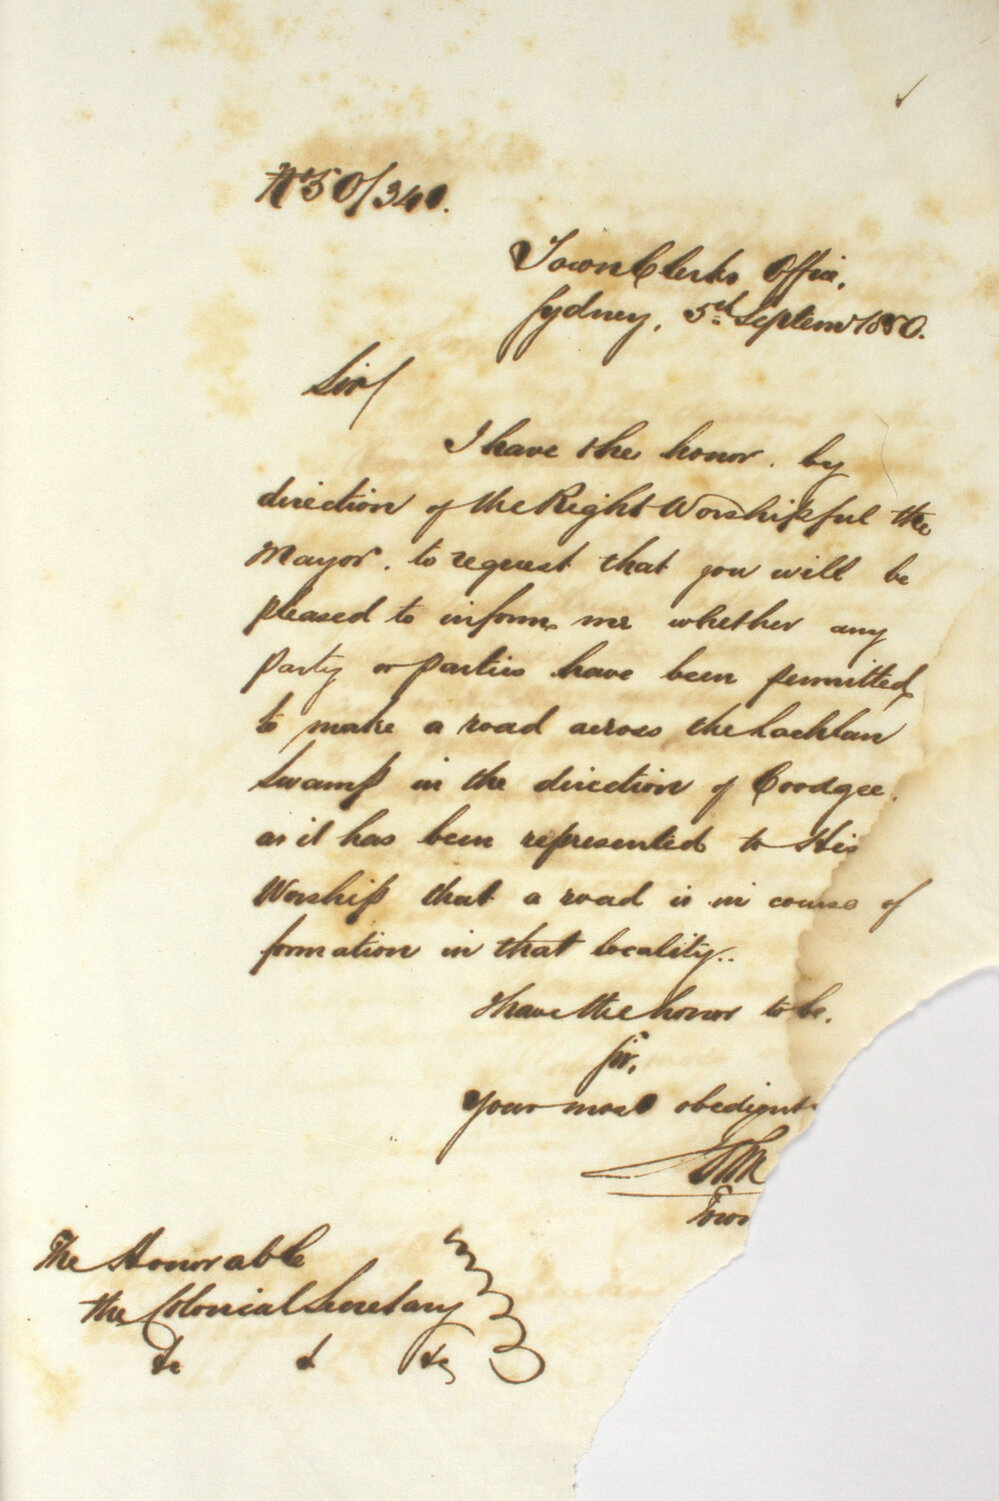 No 50/340.
Town Clerks Office,
Sydney, 5th Septemr 1850.
Sir/
I have the honor, by
direction of the Right Worshipful the
Mayor, to request that you will be
pleased to inform me whether any
party or parties have been permitted
to make a road across the Lachlan
Swamp in the direction of Coodgee,
as it has been represented to His
Worship that a road is in course of
formation in that locality..
I have the honor to be,
Sir,
Your most obedient
Town
The Honorable
the Colonial Secretary
&c & &c